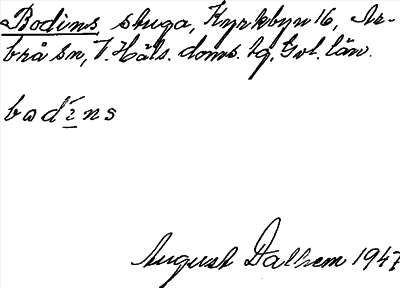 Bodins stuga, Kyrkbyn 16, Ar-
brå sn, V. Häls. doms. tg, Gvl. län.
bodins
August Dalhem 1947